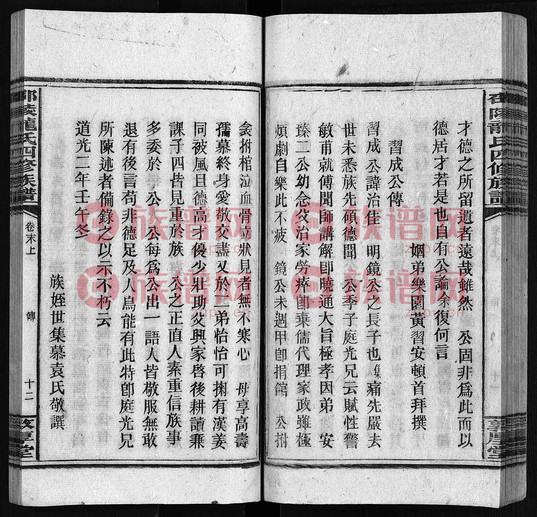 邵陵龍氏四修族譜
才德之所留遺者遠哉雖然 公固非爲此而以
德居才若是也自有公論余復何言
姻弟樂園黃習安頓首拜撰
習成公傳
習成公諱治佳 明鏡公之長子也 痛先嚴去
世未悉族先碩德聞 公季子庭光兄云賦性警
敏就傅聞師講解卽曉通大旨極孝因弟 安
臻二公幼亟欲治家勞瘁卽棄儒代理家政雖極
煩劇自樂此不疲 鏡公未週甲卽捐館 公拊
衾拊棺泣血骨立狀見者無不寒心 母享高壽
孺慕終身愛敬交盡又於 弟怡怡可掬有漢姜
同被風且德高才優少壯助父興家啓後耕讀兼
課子四皆見重於族 公之正直人素重信族事
多委於 公 公每爲公出一語人皆敬服無敢
退有後言苟非德足及人烏能有此特卽庭光兄
所陳述者備錄之以示不朽云
道光二年壬午冬
族姪世集慕袁氏敬譔
邵陵龍氏四修族譜
卷末上
傳
十二
敦厚堂
族谱网
zupu.cn